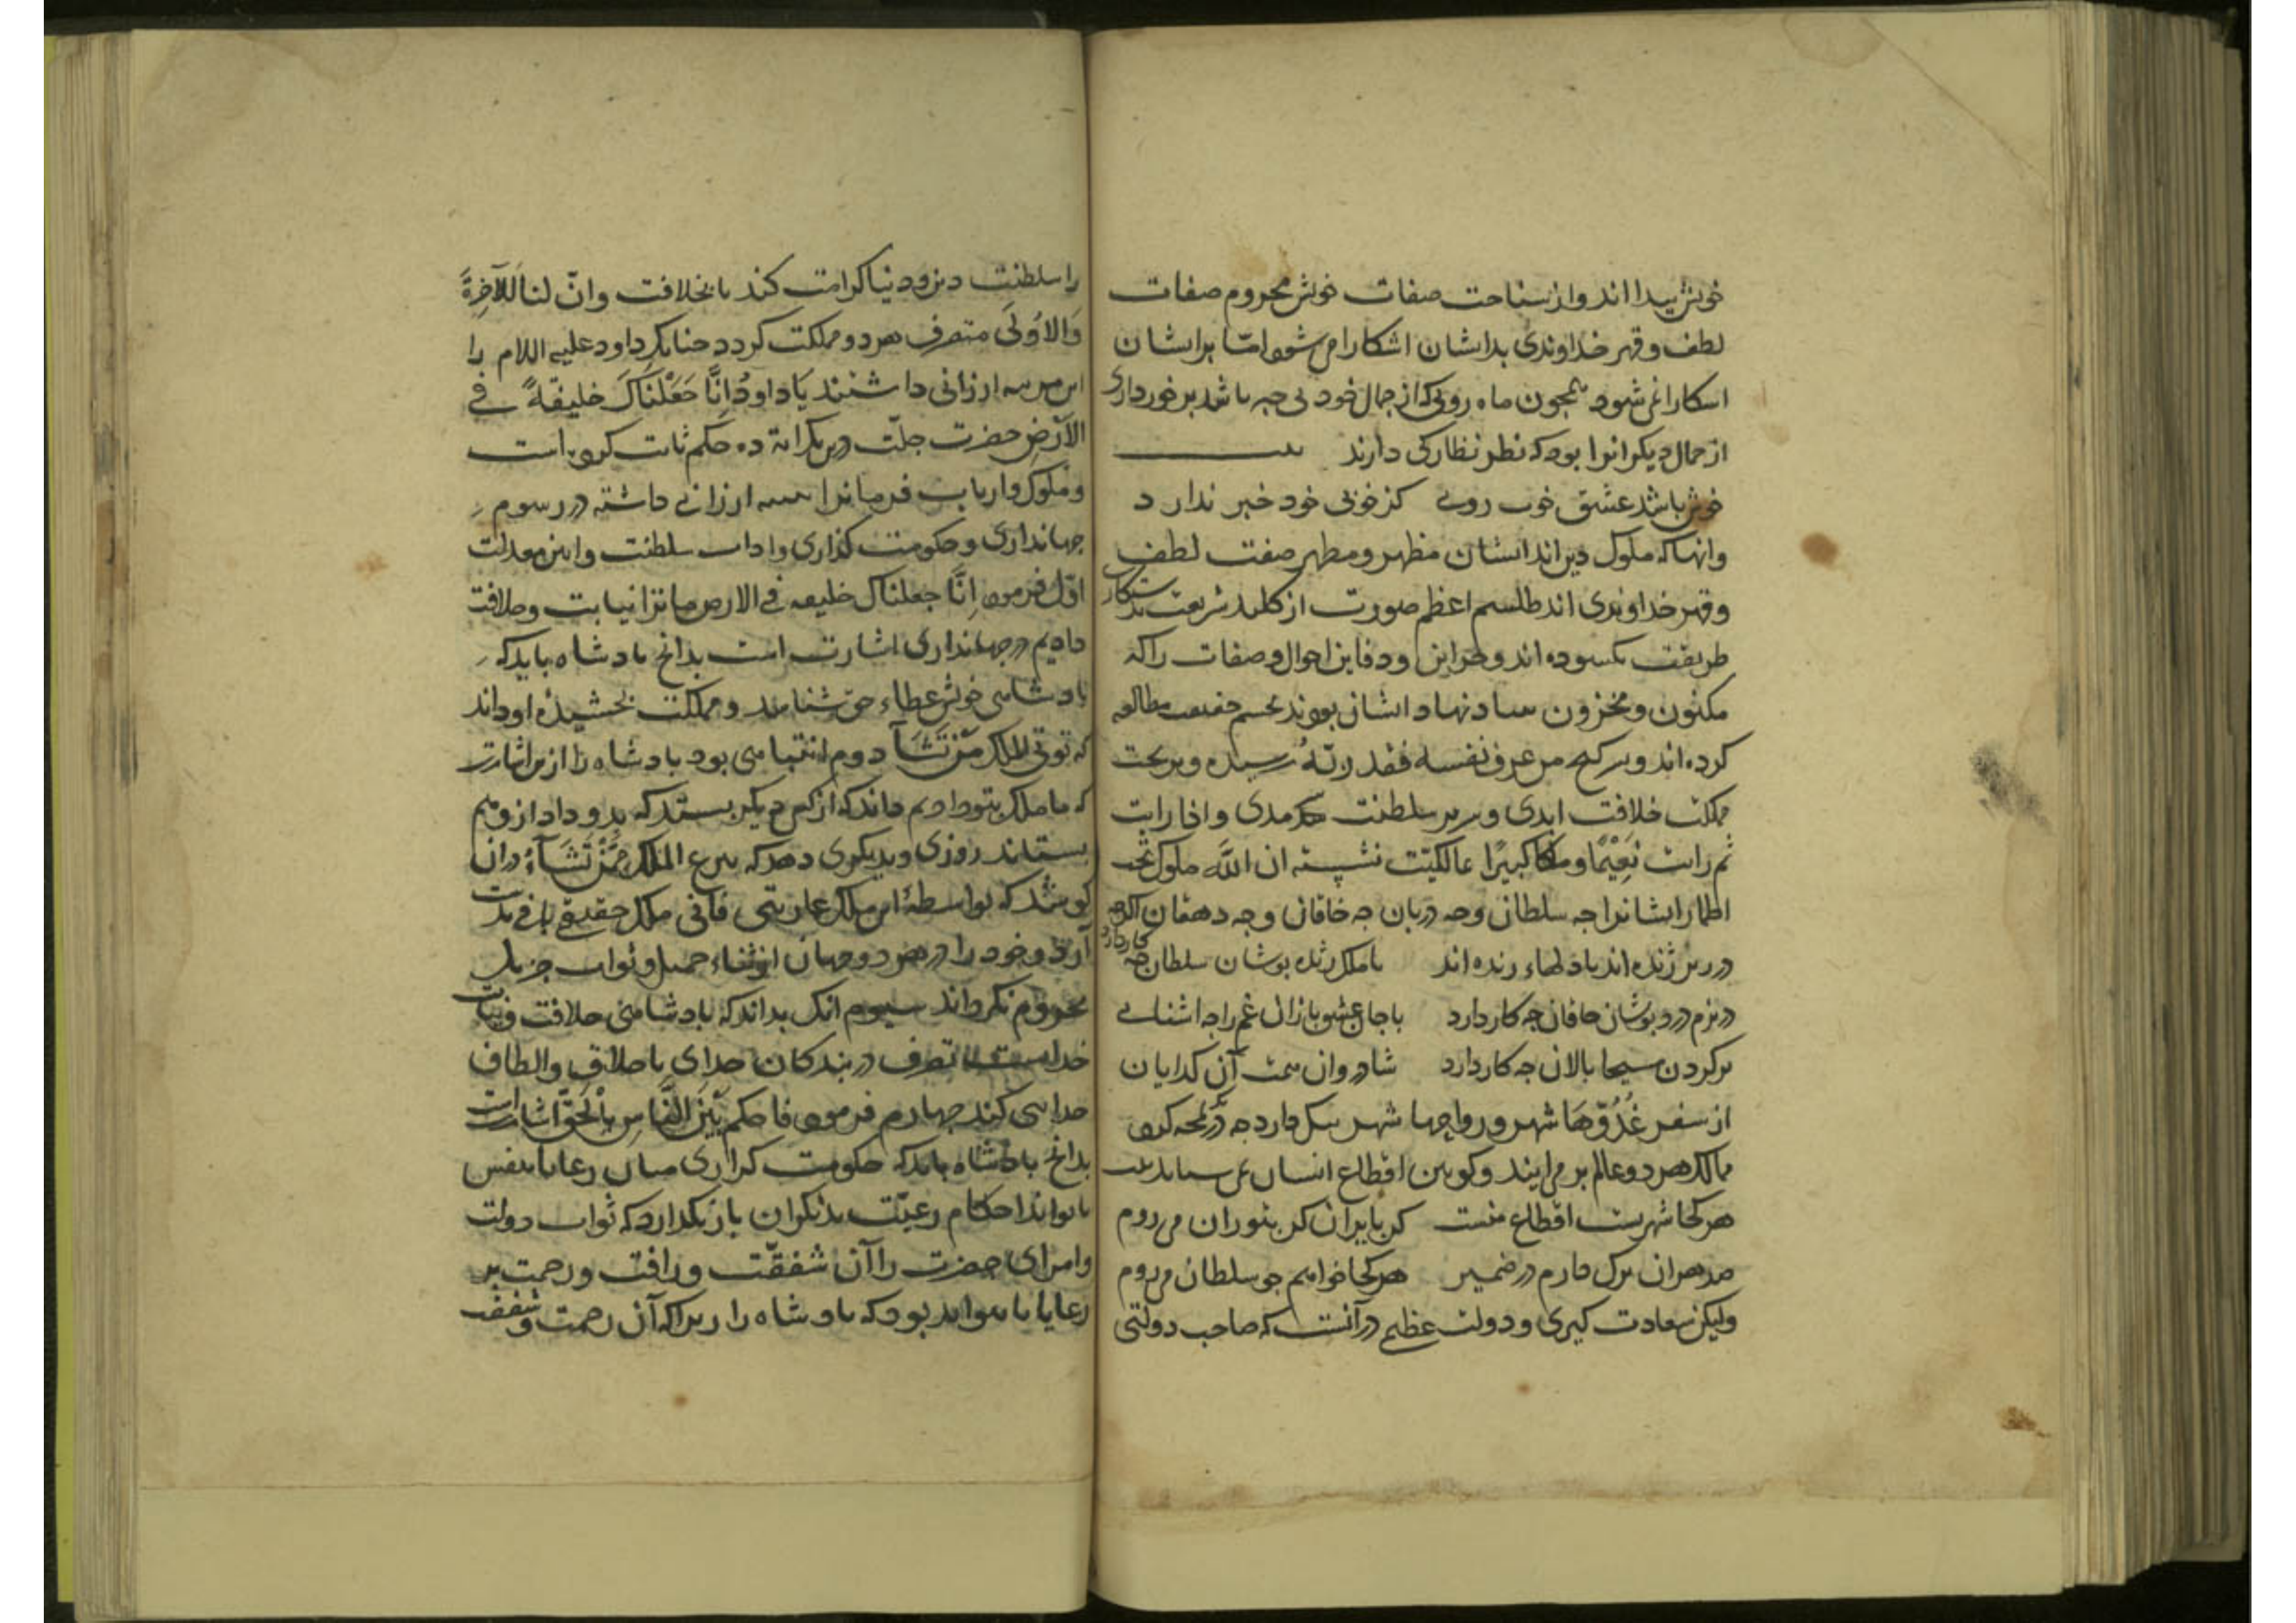 خویش پیدا اند و از شناخت صفات خویش محروم صفات
لطف و قهر خداوندی بدایشان اشکارا می شود اما بر ایشان
اشکارا نمی شود همچون ماه رویی که از جمال خود بی خبر باشد برخورداری
از جمال دیکرانرا بود که نظر نظارکی دارند بیت
خوش باشد عشق خوب رویی کز خوبی خود خبر ندارد
وانها که ملوک دین اند ایشان مظهر و مظهر صفت لطف
و قهر خداوندی اند طلسم اعظم صورت از کلید شریعت بدستکار
طریقت بکشوده اند و خزاین و دفاین احوال و صفات را که
مکنون و مخزون بنیاد نهاد ایشان بودند بچشم حقیقت مطالعه
کرده اند و بر کنج من عرف نفسه فقد عرف ربه رسیده و بر تخت
مملکت خلافت ابدی و سریر سلطنت سرمدی و اذا رایت
ثم رایت نعیما و ملکا کبیرا مالکیت نشسته ان لله ملوک تحت
اطمار ایشانرا چه سلطان و چه دربان چه خاقان و چه دهقان اکرچه
در زیر ژنده اند با دلهاء زنده اند با ملک ژنده پوشان سلطان چه کار دارد
در بزم درد نوشان خاقان چه کار دارد با جان عشق بازان غم را چه اشنایی
بر کردن مسیحا پالان چه کار دارد شادروان همت آن کدایان
از سفر غدوها شهر و رواحها شهر ننک دارد چه در یک لمحه کرد
ممالک هر دو عالم بر می ایند و کونین اقطاع ایشان می شاید بیت
هر کجا شهریست اقطاع منست کر بایران کر بتوران می روم
صد هزاران ترک دارم در ضمیر هر کجا خواهم چو سلطان می روم
ولیکن سعادت کبری و دولت عظیم در آنست که صاحب دولتی
را سلطنت دین و دنیا کرامت کند تا بخلافت و ان لنا للآخرة
والاولی متصرف هر دو مملکت کردد چنانکه داود علیه السلام را
این مرتبه ارزانی داشتند یا داود انا جعلناک خلیفة فی
الارض حضرت جلت درین یک آیة ده حکم ثابت کرده است
و ملوک و ارباب فرمانرا تنبیه ارزانی داشته در رسوم
جهانداری و حکومت کذاری و اداب سلطنت و ایین معدلت
اول فرمود انا جعلناک خلیفه فی الارض ما ترا نیابت و خلافت
دادیم در جهانداری اشارت است بدانچ پادشاه باید که
پادشاهی خویش عطاء حق شناسد و مملکت بخشیده او داند
که توتی الملک من تشآ دوم انتباهی بود پادشاه را از این اشارت
که ما ملک بتو دادیم داند که از کس دیکر بستد که بدو داد ازو هم
بستاند روزی و بدیکری دهد که تنزع الملک ممن تشآء در ان
کوشد که بواسطهٔ این ملک عاریتی فانی ملک حقیقی باقی بدست
آرد و خود را در هر دو جهان از ثناء جمیل و ثواب جزیل
محروم نکرداند سیوم انک بداند که پادشاهی خلافت و نیابت
خداست تصرف در بندکان خدای باخلاق و الطاف
خدایی کند چهارم فرمود فاحکم بین الناس بالحق اشارت است
بدانچ پادشاه باید که حکومت کزاری میان رعایا بنفس
تا تواند احکام رعیت بدیکران باز نکذارد که نواب دولت
و امرای حضرت را آن شفقت و رافت و رحمت بر
رعایا نتواند بود که پادشاه را زیرا که آن رحمت و شفقت